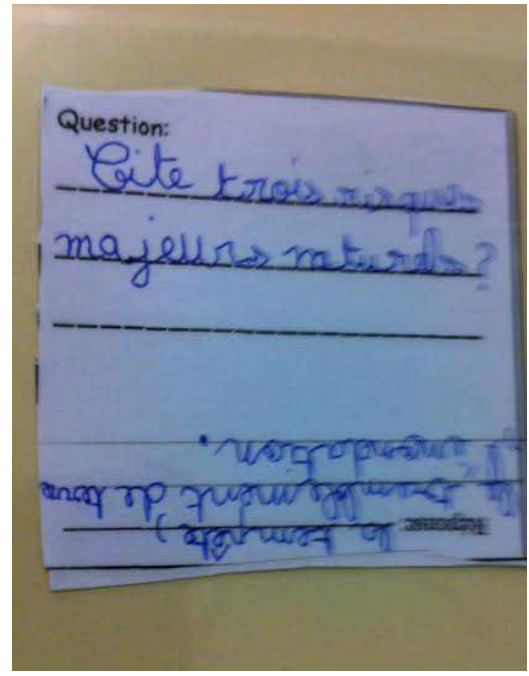 Question:
Cite trois risques
majeurs naturels?
Réponse: la tempête,
tremblement de terre
inondation.